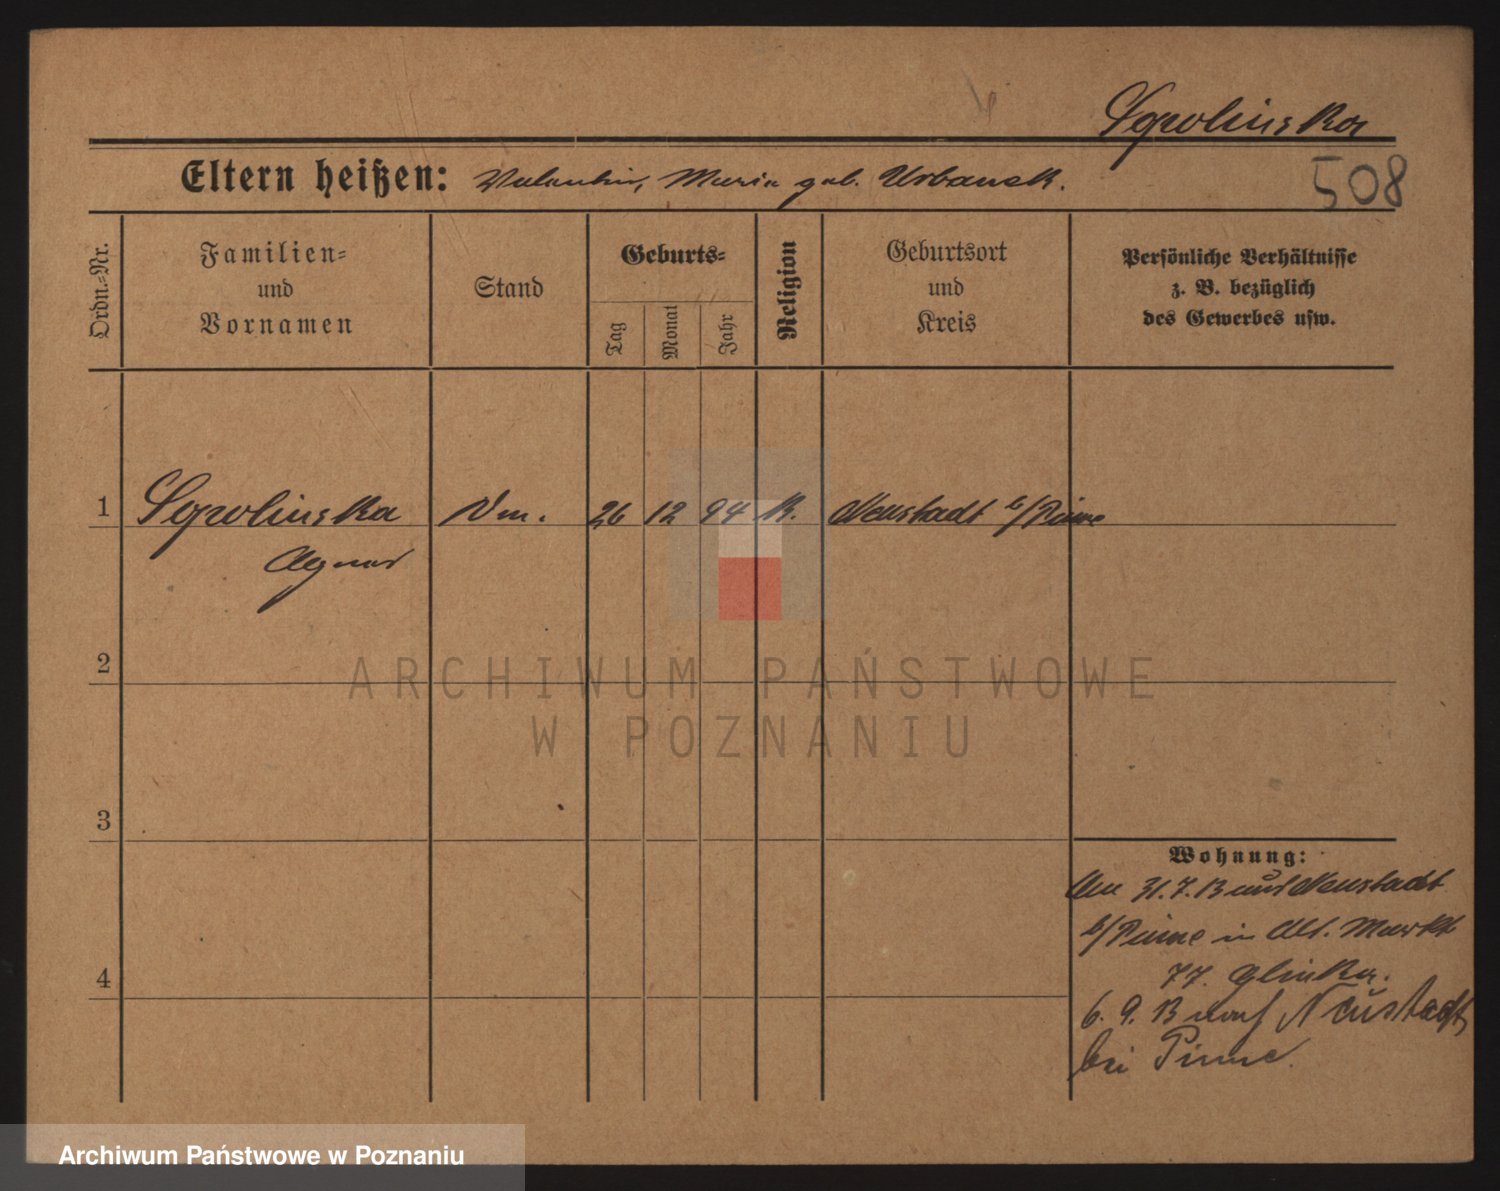 Sgolinska
508
Eltern heißen: Valentin, Maria geb. Urbansk.
Ordn.-Nr.
Familien-
und
Vornamen
Stand
Geburts-
Tag
Monat
Jahr
Religion
Geburtsort
und
Kreis
Persönliche Verhältnisse
z. B. bezüglich
des Gewerbes usw.
1
26 12 94 K. Neustadt b/Pinne
Agnes
2
ARCHIWUM PAŃSTWOWE
W POZNANIU
3
4
Wohnung:
Am 31.7.13 aus Neustadt
b/Pinne in Alt. Markt
77. Glinka.
6. 9. 13 nach Neustadt
bei Pinne.
Archiwum Państwowe w Poznaniu